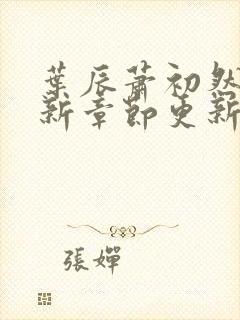 葉辰蕭初然
新章節更新
張嬋